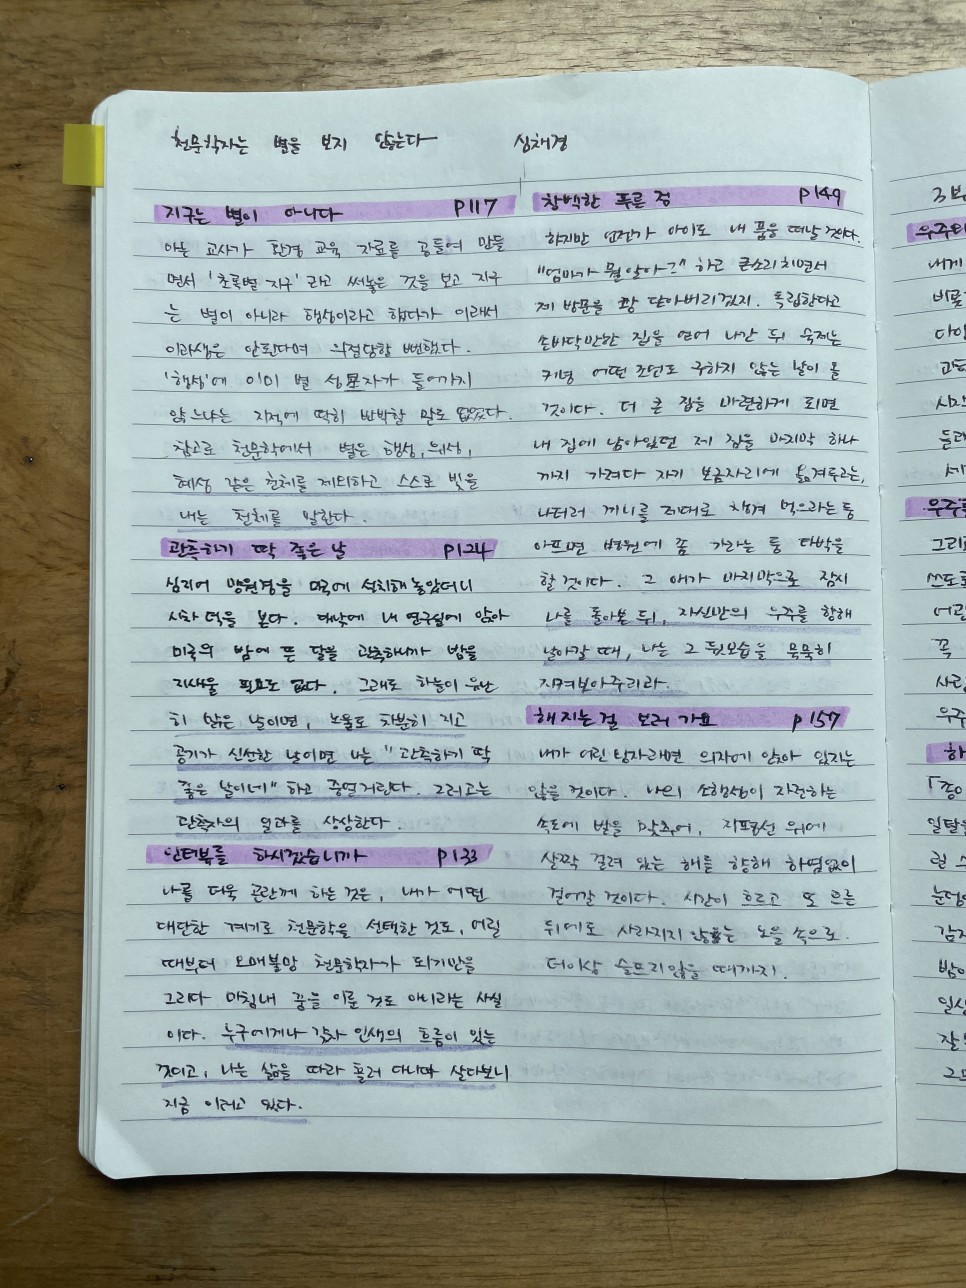 천문학자는 별을 보지 않는다 심채경
지구는 별이 아니다 P117
아는 교사가 환경 교육 자료를 공들여 만들
면서 '초록별 지구' 라고 써놓은 것을 보고 지구
는 별이 아니라 행성이라고 했다가 이래서
이과생은 안된다며 의절당할 뻔했다.
'행성'에 이미 별 성星자가 들어가지
않느냐는 지적에 딱히 반박할 말도 없었다.
참고로 천문학에서 별은 행성, 위성,
혜성 같은 천체를 제외하고 스스로 빛을
내는 천체를 말한다.
관측하기 딱 좋은 날 P124
심지어 망원경을 미국에 설치해 놓았더니
시차 덕을 본다. 대낮에 내 연구실에 앉아
미국의 밤에 뜬 달을 관측하니까 밤을
지새울 필요도 없다. 그래도 하늘이 유난
히 맑은 날이면, 노을도 차분히 지고
공기가 신선한 날이면 나는 "관측하기 딱
좋은 날이네" 하고 중얼거린다. 그러고는
관측자의 일과를 상상한다.
인터뷰를 하시겠습니까 P133
나를 더욱 곤란케 하는 것은, 내가 어떤
대단한 계기로 천문학을 선택한 것도, 어릴
때부터 오매불망 천문학자가 되기만을
그리다 마침내 꿈을 이룬 것도 아니라는 사실
이다. 누구에게나 각자 인생의 흐름이 있는
것이고, 나는 삶을 따라 흘러 다니며 살다보니
지금 이러고 있다.
창백한 푸른 점 P149
하지만 언젠가 아이도 내 품을 떠날 것이다.
"엄마가 뭘 알아?" 하고 큰소리치면서
제 방문을 쾅 닫아버리겠지. 독립한다고
손바닥만한 집을 얻어 나간 뒤 숙제는
커녕 어떤 조언도 구하지 않는 날이 올
것이다. 더 큰 집을 마련하게 되면
내 집에 남아있던 제 짐을 마지막 하나
까지 가져다 자기 보금자리에 옮겨두고는,
나더러 끼니를 제대로 챙겨 먹으라는 둥
아프면 병원에 좀 가라는 둥 타박을
할 것이다. 그 애가 마지막으로 잠시
나를 돌아본 뒤, 자신만의 우주를 향해
날아갈 때, 나는 그 뒷모습을 묵묵히
지켜보아주리라.
해 지는걸 보러 가요 P157
내가 어린 왕자라면 의자에 앉아 있지는
않을 것이다. 나의 소행성이 자전하는
속도에 발을 맞추어, 지평선 위에
살짝 걸려 있는 해를 향해 하염없이
걸어갈 것이다. 시간이 흐르고 또 흐른
뒤에도 사라지지 않는 노을 속으로.
더이상 슬프지 않을 때까지.
내게
그리고
사람
일탈을
일상